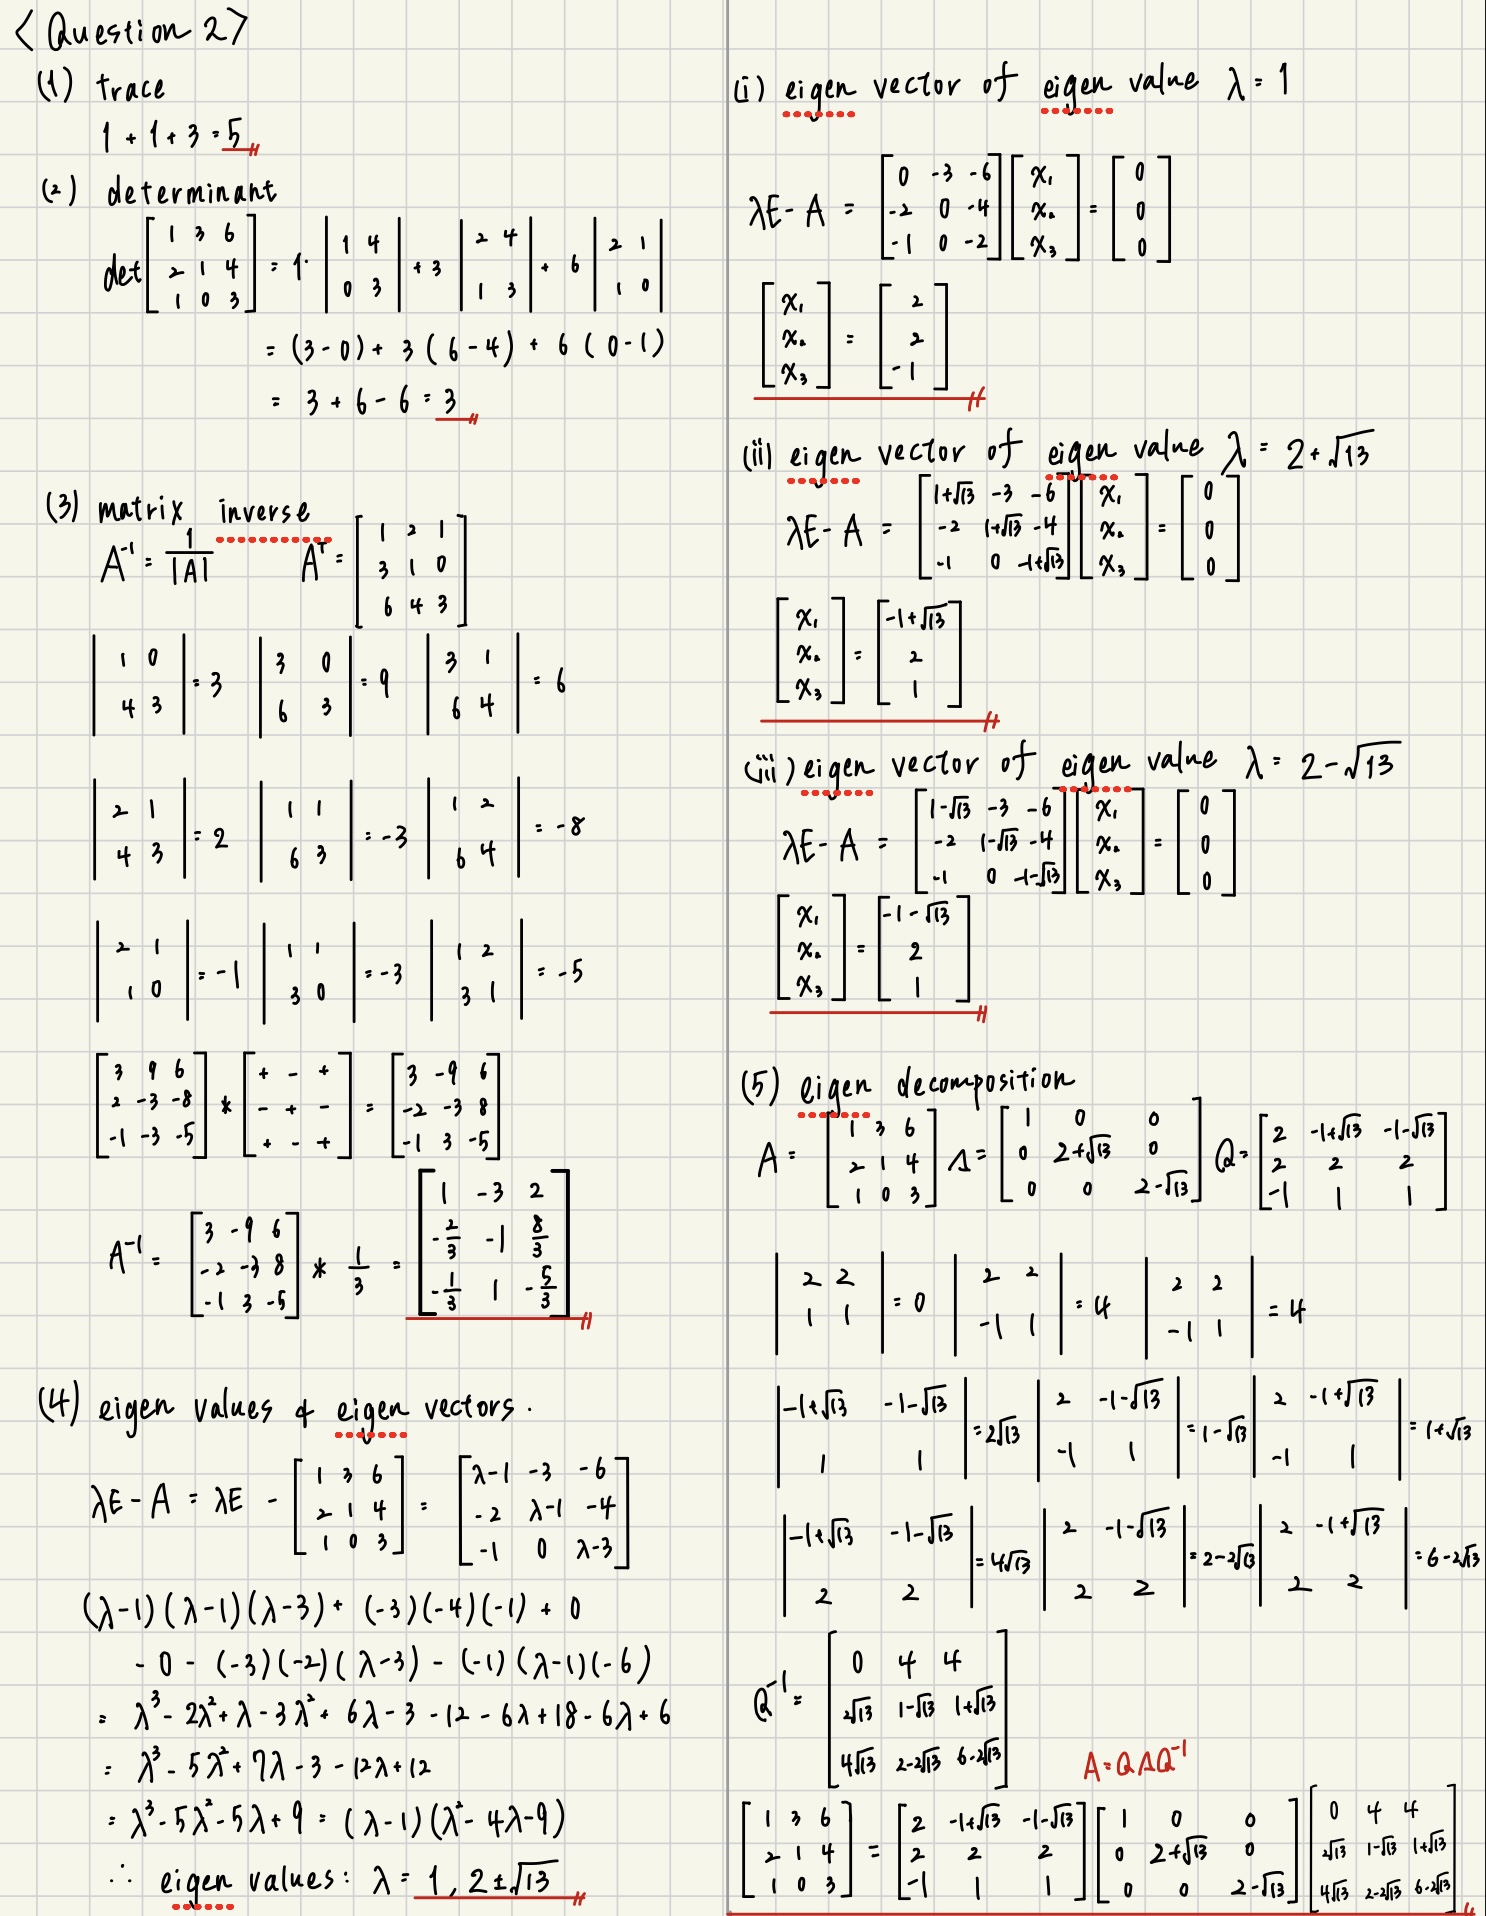 <Question 2>
(1) trace
1 + 1 + 3 = 5
(2) determinant
det [1 3 6; 2 1 4; 1 0 3] = 1· |1 4; 0 3| + 3 |2 4; 1 3| + 6 |2 1; 1 0|
= (3-0) + 3(6-4) + 6(0-1)
= 3 + 6 - 6 = 3
(3) matrix inverse
A⁻¹ = 1/|A|   Aᵀ = [1 2 1; 3 1 0; 6 4 3]
|1 0; 4 3| = 3   |3 0; 6 3| = 9   |3 1; 6 4| = 6
|2 1; 4 3| = 2   |1 1; 6 3| = -3   |1 2; 6 4| = -8
|2 1; 1 0| = -1   |1 1; 3 0| = -3   |1 2; 3 1| = -5
[3 9 6; 2 -3 -8; -1 -3 -5] * [+ - +; - + -; + - +] = [3 -9 6; -2 -3 8; -1 3 -5]
A⁻¹ = [3 -9 6; -2 -3 8; -1 3 -5] * 1/3 = [1 -3 2; -2/3 -1 8/3; -1/3 1 -5/3]
(4) eigen values & eigen vectors.
λE - A = λE - [1 3 6; 2 1 4; 1 0 3] = [λ-1 -3 -6; -2 λ-1 -4; -1 0 λ-3]
(λ-1)(λ-1)(λ-3) + (-3)(-4)(-1) + 0
- 0 - (-3)(-2)(λ-3) - (-1)(λ-1)(-6)
= λ³ - 2λ² + λ - 3λ² + 6λ - 3 - 12 - 6λ + 18 - 6λ + 6
= λ³ - 5λ² + 7λ - 3 - 12λ + 12
= λ³ - 5λ² - 5λ + 9 = (λ-1)(λ² - 4λ - 9)
∴ eigen values: λ = 1, 2±√13
(i) eigen vector of eigen value λ = 1
λE - A = [0 -3 -6; -2 0 -4; -1 0 -2] [x₁; x₂; x₃] = [0; 0; 0]
[x₁; x₂; x₃] = [2; 2; -1]
(ii) eigen vector of eigen value λ = 2+√13
λE - A = [1+√13 -3 -6; -2 1+√13 -4; -1 0 -1+√13] [x₁; x₂; x₃] = [0; 0; 0]
[x₁; x₂; x₃] = [-1+√13; 2; 1]
(iii) eigen vector of eigen value λ = 2-√13
λE - A = [1-√13 -3 -6; -2 1-√13 -4; -1 0 -1-√13] [x₁; x₂; x₃] = [0; 0; 0]
[x₁; x₂; x₃] = [-1-√13; 2; 1]
(5) eigen decomposition
A = [1 3 6; 2 1 4; 1 0 3] Λ = [1 0 0; 0 2+√13 0; 0 0 2-√13] Q = [2 -1+√13 -1-√13; 2 2 2; -1 1 1]
|2 2; 1 1| = 0   |2 2; -1 1| = 4   |2 2; -1 1| = 4
|-1+√13 -1-√13; 1 1| = 2√13   |2 -1-√13; -1 1| = 1-√13   |2 -1+√13; -1 1| = 1+√13
|-1+√13 -1-√13; 2 2| = 4√13   |2 -1-√13; 2 2| = 2-2√13   |2 -1+√13; 2 2| = 6-2√13
Q⁻¹ = [0 4 4; 2√13 1-√13 1+√13; 4√13 2-2√13 6-2√13]
A = QΛQ⁻¹
[1 3 6; 2 1 4; 1 0 3] = [2 -1+√13 -1-√13; 2 2 2; -1 1 1] [1 0 0; 0 2+√13 0; 0 0 2-√13] [0 4 4; 2√13 1-√13 1+√13; 4√13 2-2√13 6-2√13]